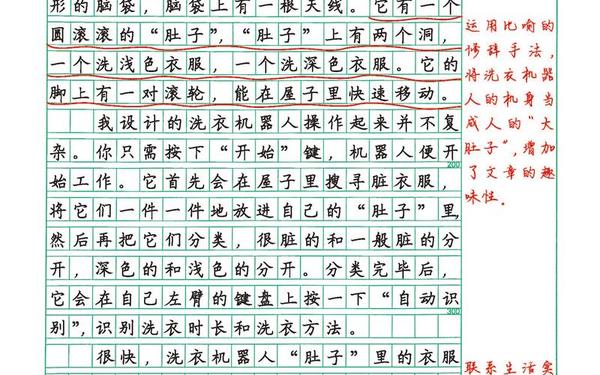 形的脑袋，脑袋上有一根天线。它有一个
圆滚滚的“肚子”，“肚子”上有两个洞，
一个洗浅色衣服，一个洗深色衣服。它的
脚上有一对滚轮，能在屋子里快速移动。
我设计的洗衣机器人操作起来并不复
杂。你只需按下“开始”键，机器人便开
200
始工作。它首先会在屋子里搜寻脏衣服，
将它们一件一件地放进自己的“肚子”里，
然后再把它们分类，很脏的和一般脏的分
开，深色的和浅色的分开。分类完毕后，
它会在自己左臂的键盘上按一下“自动识
300
别”，识别洗衣时长和洗衣方法。
很快，洗衣机器人“肚子”里的衣服
运用比喻的
修辞手法，
将洗衣机器
人的机身当
成人的“大
肚子”，增加
了文章的趣
味性。
联系生活实